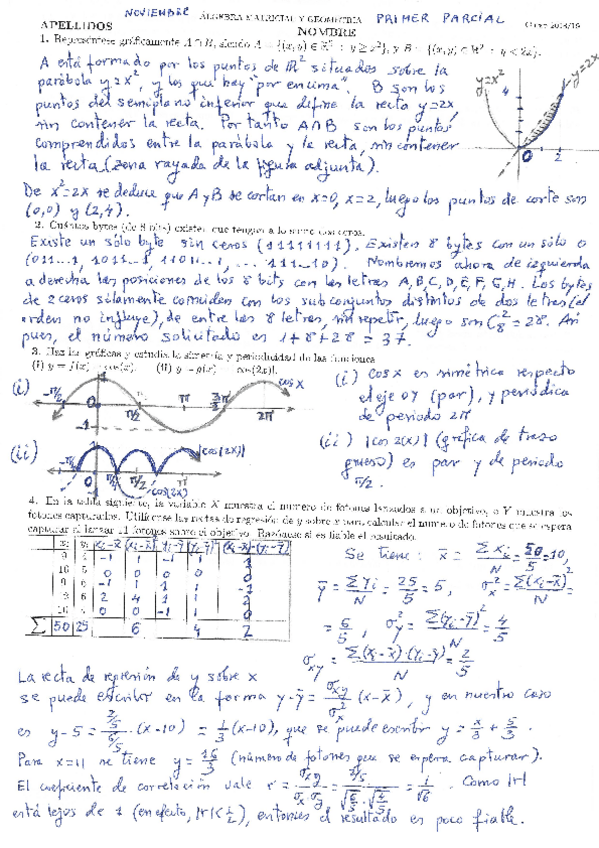 NOVIEMBRE ÁLGEBRA MATRICIAL Y GEOMETRÍA PRIMER PARCIAL Curso 2018/19
APELLIDOS NOMBRE
1. Represéntese gráficamente A ∩ B, siendo A = {(x, y) ∈ R² : y ≥ x²}, y B = {(x, y) ∈ R² : y < 2x}.
A está formado por los puntos de ℝ² situados sobre la
parábola y=x², y los que hay "por encima". B son los
puntos del semiplano inferior que define la recta y=2x,
sin contener la recta. Por tanto A∩B son los puntos
comprendidos entre la parábola y la recta, sin contener
la recta (zona rayada de la figura adjunta).
y=x² 4 y=2x
0 2
De x²=2x se deduce que A y B se cortan en x=0, x=2, luego los puntos de corte son
(0,0) y (2,4).
2. Cuántos bytes (de 8 bits) existen que tengan a lo sumo dos ceros.
Existe un sólo byte sin ceros (11111111). Existen 8 bytes con un sólo 0
(011...1, 1011...1, 11011...1, ... 111...10). Nombremos ahora de izquierda
a derecha las posiciones de los 8 bits con las letras A, B, C, D, E, F, G, H. Los bytes
de 2 ceros sólamente coinciden con los subconjuntos distintos de dos letras (el
orden no influye), de entre las 8 letras, sin repetir, luego son C₈² = 28. Así
pues, el número solicitado es 1+8+28 = 37.
3. Haz las gráficas y estudia la simetría y periodicidad de las funciones
(i) y = f(x) = cos(x). (ii) y = g(x) = |cos(2x)|.
(i) -π/2 0 π/2 π 3π/2 2π cos x
-1
(i) cos x es simétrica respecto
el eje OY (par), y periódica
de periodo 2π
(ii) -π/4 0 π/4 π/2 |cos(2x)|
-1 cos(2x)
(ii) |cos 2(x)| (gráfica de trazo
grueso) es par y de periodo
π/2.
4. En la tabla siguiente, la variable X muestra el número de fotones lanzados a un objetivo, e Y muestra los
fotones capturados. Utilícense las rectas de regresión de y sobre x para calcular el número de fotones que se espera
capturar al lanzar 11 fotones sobre el objetivo. Razónese si es fiable el resultado.
xᵢ yᵢ xᵢ-x̄ (xᵢ-x̄)² yᵢ-ȳ (yᵢ-ȳ)² (xᵢ-x̄)·(yᵢ-ȳ)
Σ 50 25 6 4 2
Se tiene: x̄ = Σxᵢ/N = 50/5 = 10,
ȳ = Σyᵢ/N = 25/5 = 5, σx² = Σ(xᵢ-x̄)²/N =
= 6/5, σy² = Σ(yᵢ-ȳ)²/N = 4/5
σxy = Σ(xᵢ-x̄)·(yᵢ-ȳ)/N = 2/5
La recta de regresión de y sobre x
se puede escribir en la forma y-ȳ = σxy/σx² (x-x̄), y en nuestro caso
es y-5 = (2/5)/(6/5) ·(x-10) = 1/3 (x-10), que se puede escribir y = x/3 + 5/3.
Para x=11 se tiene y = 16/3 (número de fotones que se espera capturar).
El coeficiente de correlación vale r = σxy/(σx σy) = (2/5)/(√(6/5)·√(4/5)) = 1/√6. Como |r|
está lejos de 1 (en efecto, |r|<1/2), entonces el resultado es poco fiable.